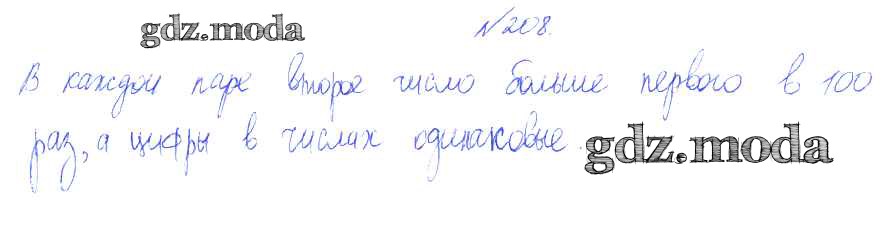 gdz.moda
№208.
В каждой паре второе число больше первого в 100
раз, а цифры в числах одинаковые.
gdz.moda